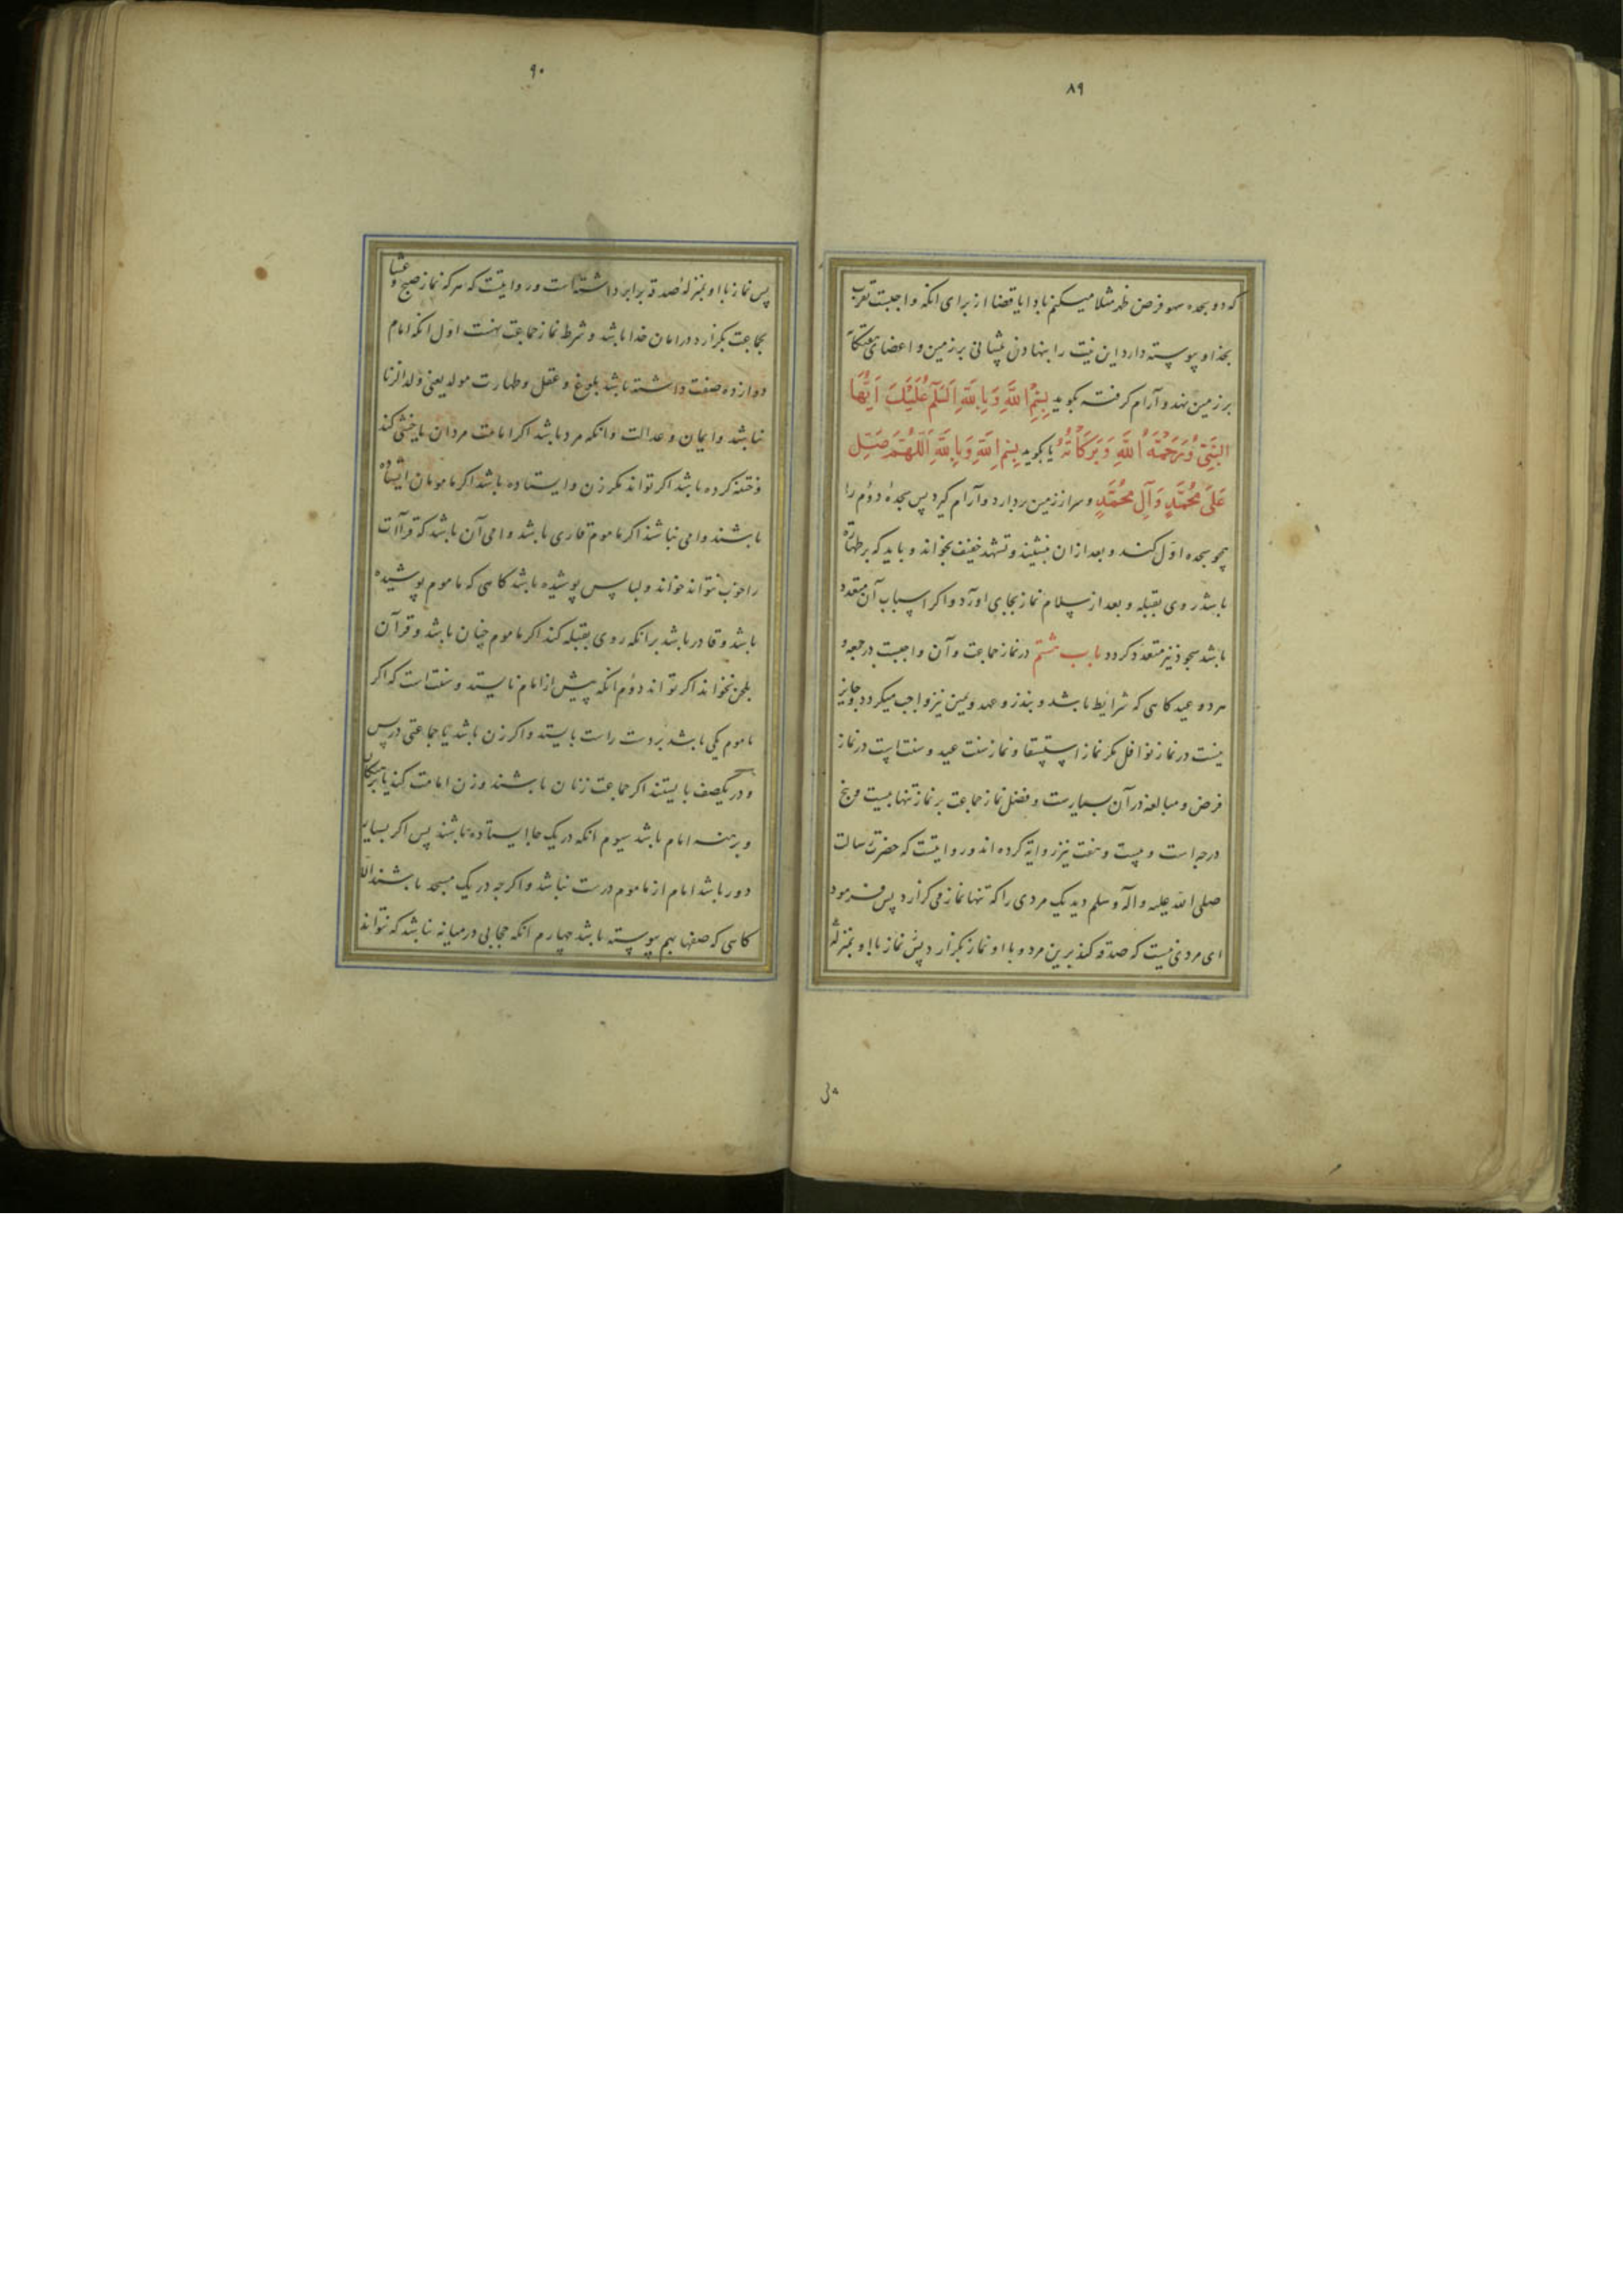 ۸۹
که دو سجده سهو فرض ظهر مثلا میکنم بادا یا قضا از برای انکه واجبست تقرب
بخدا و پیوسته دارد این نیت را بنهادن پیشانی بر زمین و اعضای
بر زمین نهد و آرام گرفته بگوید بِسْمِ اللَّهِ وَبِاللَّهِ اَلسَّلَامُ عَلَيْكَ اَيُّهَا
النَّبِيُّ وَرَحْمَةُ اللَّهِ وَبَرَكَاتُهُ یا بگوید بِسْمِ اللَّهِ وَبِاللَّهِ اَللّٰهُمَّ صَلِّ
عَلَى مُحَمَّدٍ وَآلِ مُحَمَّدٍ و سر از زمین بردارد و آرام گیرد پس سجدهٔ دوم را
چو سجده اول کند و بعد از ان بنشیند و تشهد خفیف بخواند و باید که بر طهارة
باشد روی بقبله و بعد از سلام نماز بجای اورد و اکر اسباب آن متعدد
باشد سجود نیز متعدد کردد باب هشتم در نماز جماعت و آن واجبست در جمعه و
هر دو عید کاهی که شرایط باشد و بنذر و عهد و یمین نیز واجب میکردد و جایز
نیست در نماز نوافل مکر نماز استسقا و نماز سنت عید و سنت است در نماز
فرض و مبالغه در آن بسیارست و فضل نماز جماعت بر نماز تنها بیست و پنج
درجه است و بیست و هفت نیز روایة کرده اند و روایتست که حضرت رسالت
صلی الله علیه و اله و سلم دید یک مردی را که تنها نماز می کزارد پس فرمود
ای مردی نیست که صدقه کند برین مرد و با او نماز بکزارد پس نماز با او بمنزله
۹۰
پس نماز با او بمنزلهٔ صدقه برابر داشته است و روایتست که هرکه نماز صبح و عشا
بجماعت بکزارد در امان خدا باشد و شرط نماز جماعت هفت اول انکه امام
دوازده صفت داشته باشد بلوغ و عقل و طهارت مولد یعنی ولد الزنا
نباشد و ایمان و عدالت و انکه مرد باشد اکر امامت مردان یا خنثی کند
و ختنه کرده باشد اکر تواند مکر زن و ایستاده باشد اکر مامومان ایستاده
باشند و امی نباشد اکر ماموم قاری باشد و امی آن باشد که قرآات
را خوب نتواند خواند و لباس پوشیده باشد کاهی که ماموم پوشیده
باشد و قادر باشد برانکه روی بقبله کند اکر ماموم چنان باشد و قرآن
بلحن نخواند اکر تواند دوم انکه پیش از امام نایستد و سنت است که اکر
ماموم یکی باشد بر دست راست بایستد و اکر زن باشد یا جماعتی در پس
و در یکصف بایستند اکر جماعت زنان باشند و زن امامت کند یا
و برهنه امام باشد سیوم انکه در یک جا ایستاده باشند پس اکر بسیار
دور باشد امام از ماموم درست نباشد و اکرچه در یک مسجد باشند الا
کاهی که صفها بهم پیوسته باشد چهارم انکه حجابی در میانه نباشد که نتواند